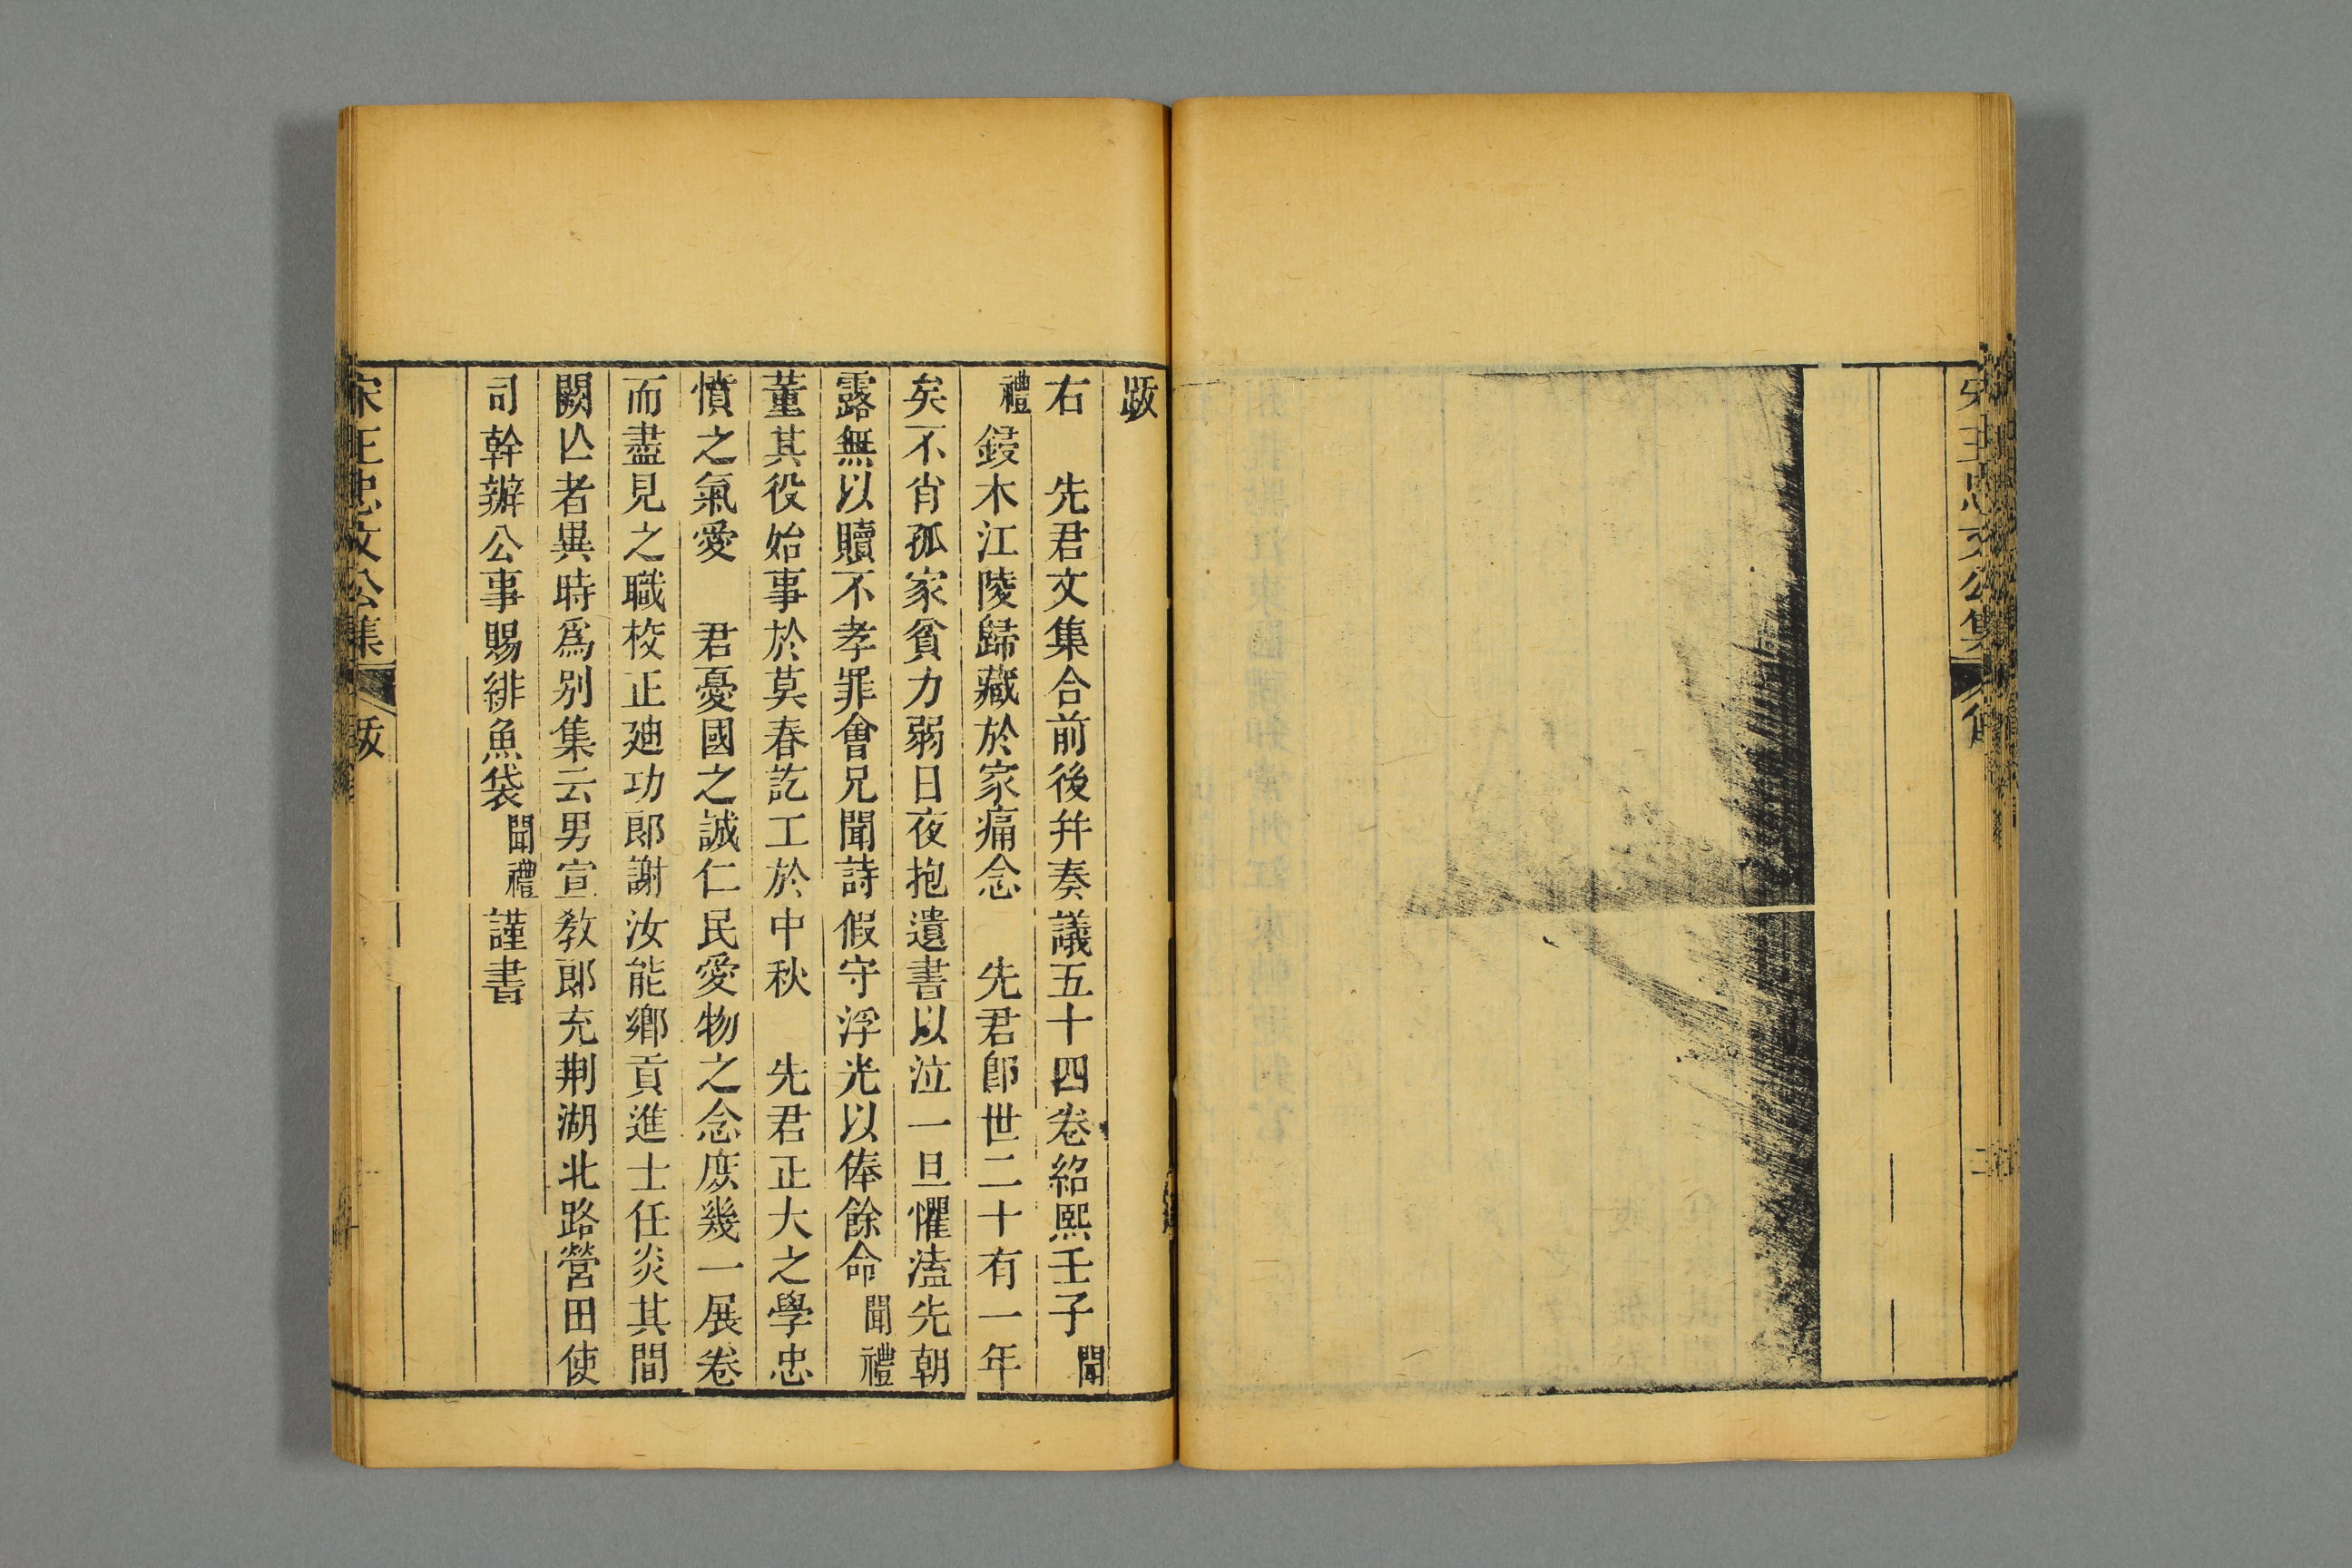 宋王忠文公集
跋
右　先君文集合前後幷奏議五十四卷紹熙壬子聞
禮鋟木江陵歸藏於家痛念　先君卽世二十有一年
矣不肖孤家貧力弱日夜抱遺書以泣一旦懼溘先朝
露無以贖不孝罪會兄聞詩假守浮光以俸餘命聞禮
董其役始事於莫春訖工於中秋　先君正大之學忠
憤之氣愛　君憂國之誠仁民愛物之念庶幾一展卷
而盡見之職校正廸功郎謝汝能鄉貢進士任炎其間
闕亾者異時爲別集云男宣敎郎充荆湖北路營田使
司幹辦公事賜緋魚袋聞禮謹書
宋王忠文公集　跋